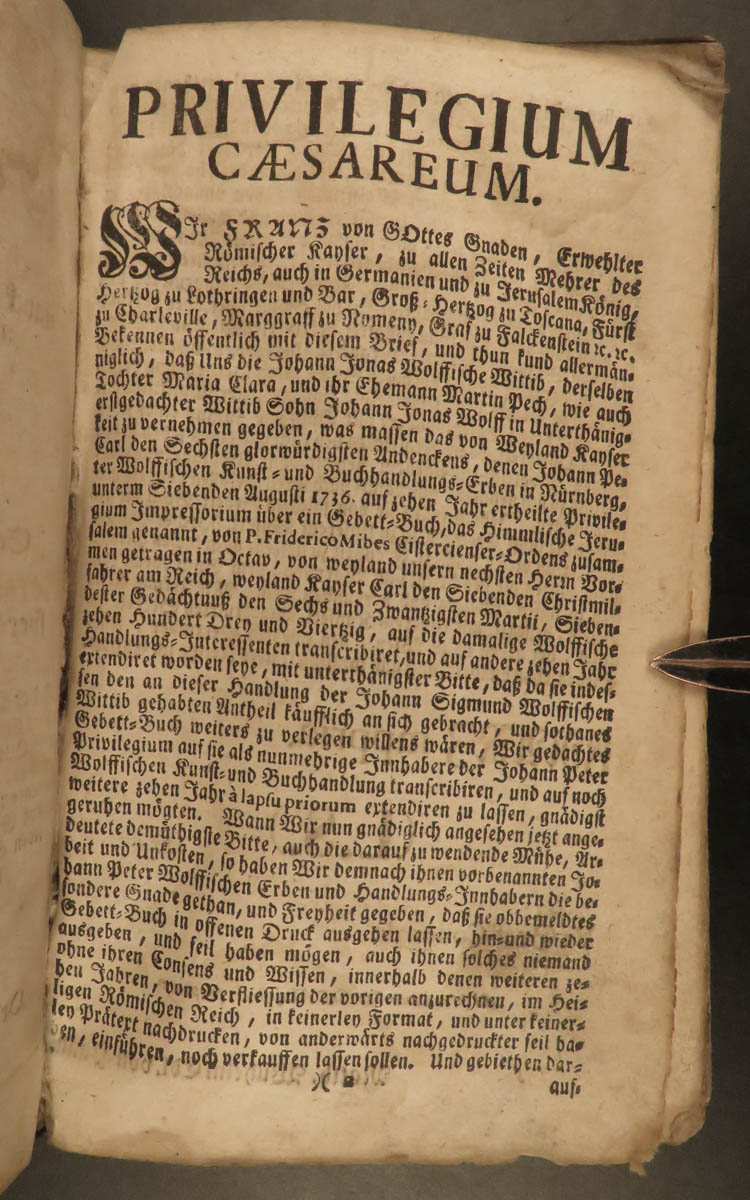 PRIVILEGIUM
CÆSAREUM.
WJr FRANZ von GOttes Gnaden, Erwehlter
Römischer Kayser, zu allen Zeiten Mehrer des
Reichs, auch in Germanien und zu Jerusalem König,
Hertzog zu Lothringen und Bar, Groß-Hertzog zu Toscana, Fürst
zu Charleville, Marggraff zu Nomeny, Graf zu Falckenstein ꝛc. ꝛc.
Bekennen öffentlich mit diesem Brief, und thun kund allermän-
niglich, daß Uns die Johann Jonas Wolffische Wittib, derselben
Tochter Maria Clara, und ihr Ehemann Martin Pech, wie auch
erstgedachter Wittib Sohn Johann Jonas Wolff in Unterthänig-
keit zu vernehmen gegeben, was massen das von Weyland Kayser
Carl den Sechsten glorwürdigsten Andenckens, denen Johann Pe-
ter Wolffischen Kunst- und Buchhandlungs-Erben in Nürnberg,
unterm Siebenden Augusti 1736. auf zehen Jahr ertheilte Privile-
gium Impressorium über ein Gebett-Buch, das Himmlische Jeru-
salem genannt, von P. Friderico Mibes Cistercienser-Ordens zusam-
men getragen in Octav, von weyland unsern nechsten Herrn Vor-
fahrer am Reich, weyland Kayser Carl den Siebenden Christmil-
dester Gedächtnuß den Sechs und Zwantzigsten Martii, Sieben-
zehen Hundert Drey und Viertzig, auf die damalige Wolffische
Handlungs-Interessenten transcribiret, und auf andere zehen Jahr
extendiret worden seye, mit unterthänigster Bitte, daß da sie indes-
sen den an dieser Handlung der Johann Sigmund Wolffischen
Wittib gehabten Antheil käufflich an sich gebracht, und sothanes
Gebett-Buch weiters zu verlegen willens wären, Wir gedachtes
Privilegium auf sie als nunmehrige Innhabere der Johann Peter
Wolffischen Kunst- und Buchhandlung transcribiren, und auf noch
weitere zehen Jahr à lapsu priorum extendiren zu lassen, gnädigst
geruhen mögten. Wann Wir nun gnädiglich angesehen jetzt ange-
deutete demüthigste Bitte, auch die darauf zu wendende Mühe, Ar-
beit und Unkosten, so haben Wir demnach ihnen vorbenannten Jo-
hann Peter Wolffischen Erben und Handlungs-Innhabern die be-
sondere Gnade gethan, und Freyheit gegeben, daß sie obbemeldtes
Gebett-Buch in offenen Druck ausgehen lassen, hin- und wieder
ausgeben, und feil haben mögen, auch ihnen solches niemand
ohne ihren Consens und Wissen, innerhalb denen weiteren ze-
hen Jahren, von Verfliessung der vorigen anzurechnen, im Hei-
ligen Römischen Reich, in keinerley Format, und unter keiner-
ley Prätext nachdrucken, von anderwärts nachgedruckter feil ha-
en, einführen, noch verkauffen lassen sollen. Und gebiethen dar-
auf-